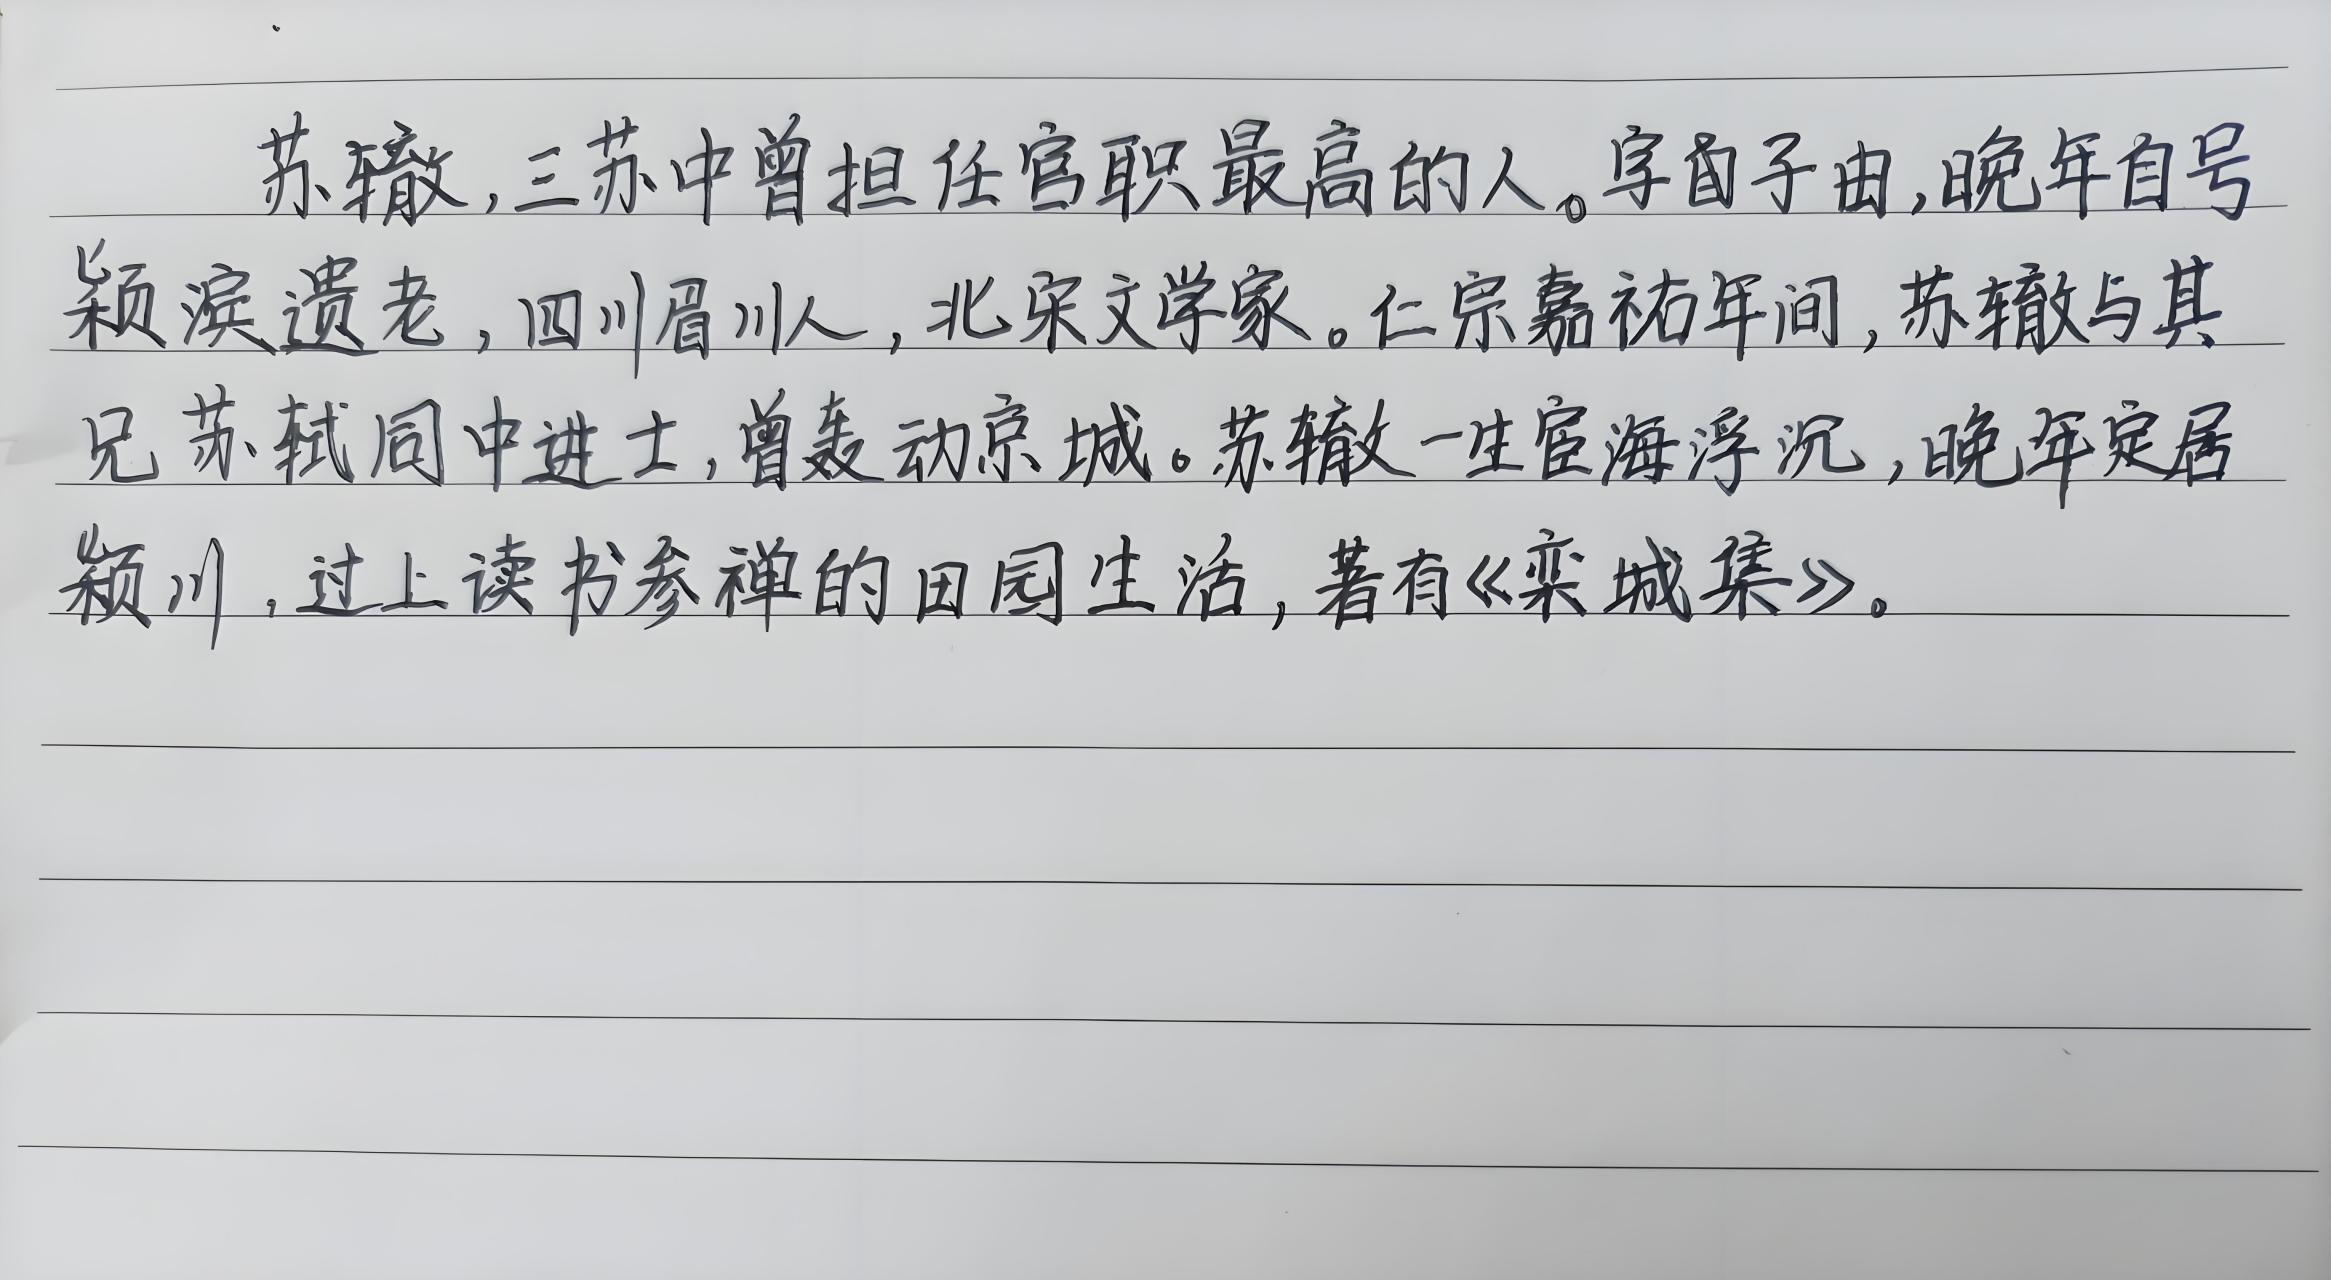 苏辙,三苏中曾担任官职最高的人。字子由,晚年自号
颍滨遗老,四川眉川人,北宋文学家。仁宗嘉祐年间,苏辙与其
兄苏轼同中进士,曾轰动京城。苏辙一生宦海浮沉,晚年定居
颍川,过上读书参禅的田园生活,著有《栾城集》。